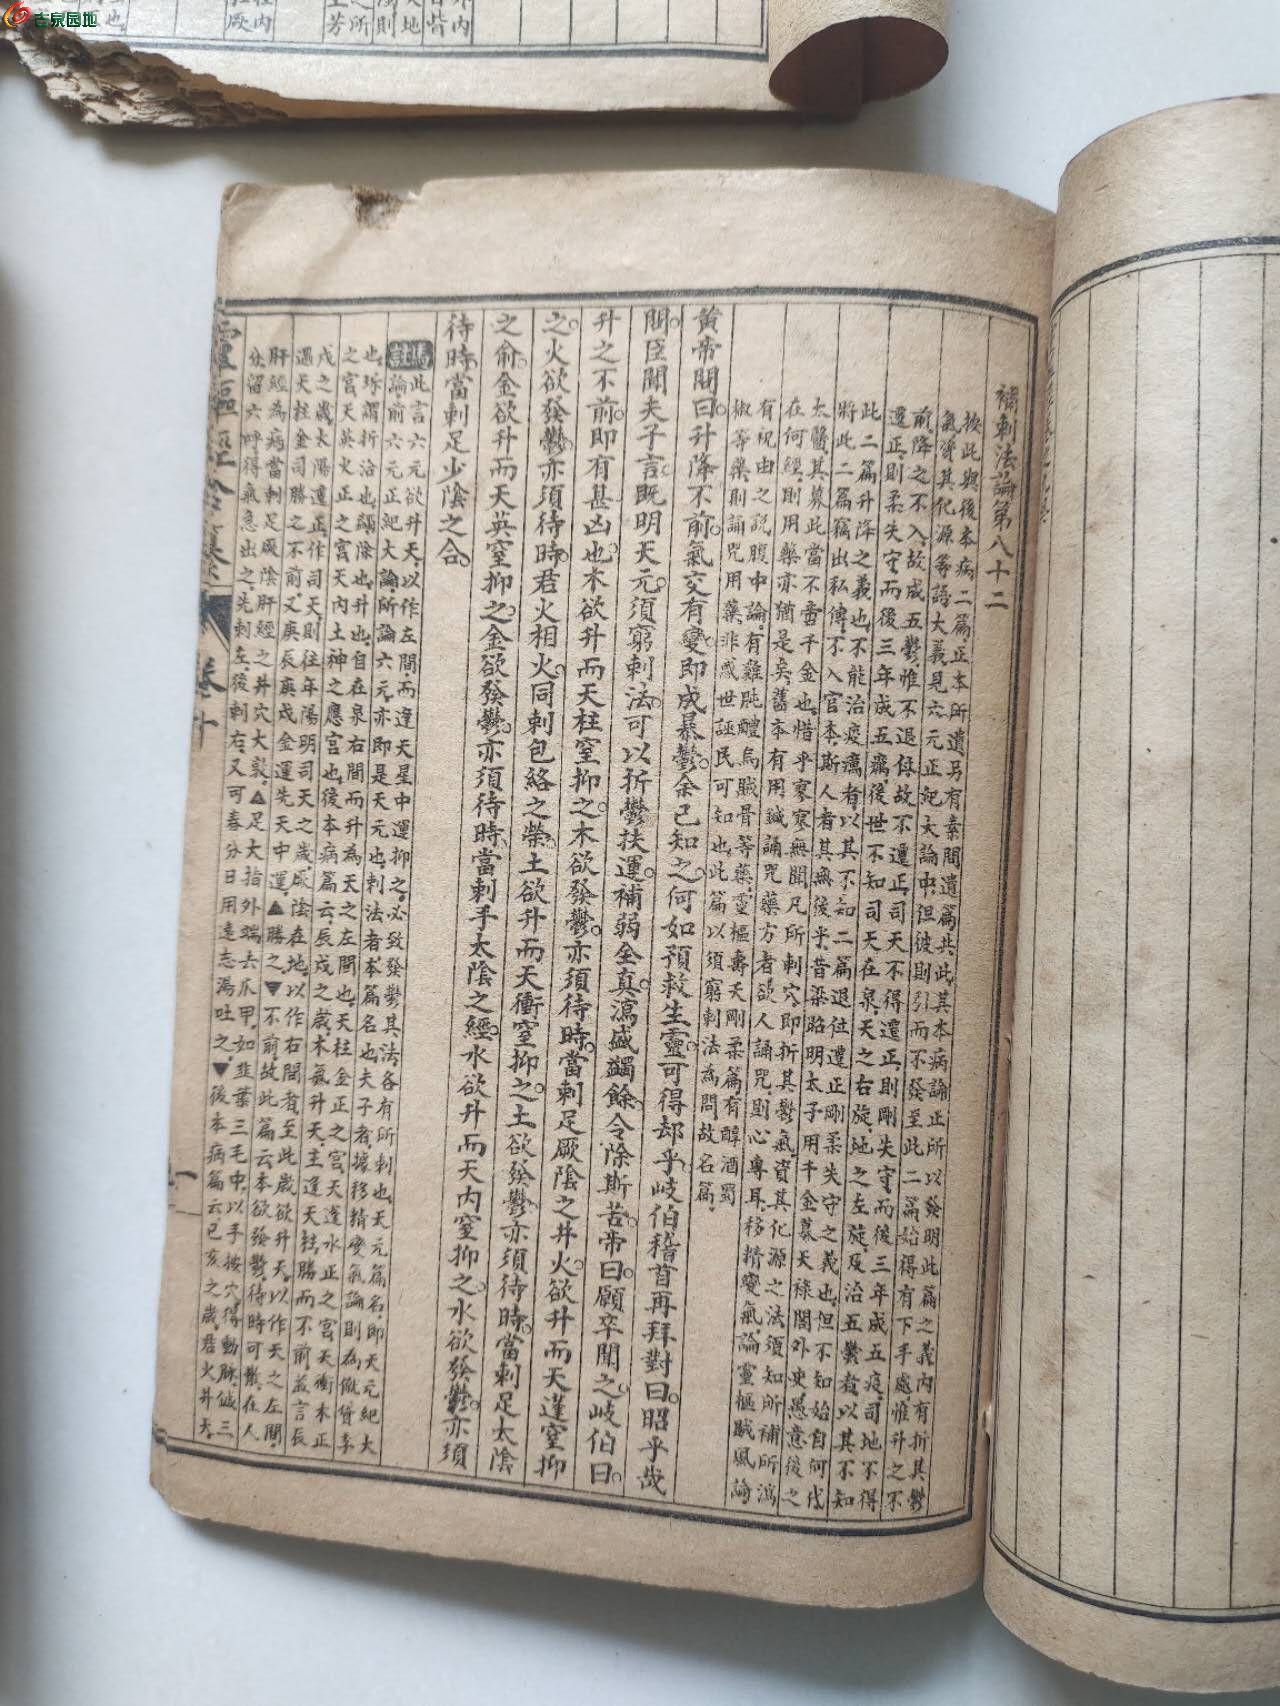 古泉园地
補刺法論第八十二
按此與後本病二篇正本所遺另有素問遺篇共此其本病論正所以發明此篇之義內有折其鬱
氣資其化源等語大義見六元正紀大論中但彼則引而不發至此二篇始得有下手處惟升之不
前降之不入故成五鬱惟不退位故不遷正司天不得遷正則剛失守而後三年成五疫司地不得
遷正則柔失守而後三年成五癘後世不知司天在泉天之右旋地之左旋及治五鬱者以其不知
此二篇升降之義也不能治疫癘者以其不知二篇退位遷正剛柔失守之義也但不知始自何代
將此二篇竊出私傳不入官本斯人者其無後乎昔梁昭明太子用千金募天祿閣外史愚意後之
太醫其募此當不啻千金也惜乎寥寥無聞凡所刺穴即折其鬱氣資其化源之法須知所補所瀉
在何經則用藥亦猶是矣舊本有用鍼誦咒藥方者欲人誦咒則心專耳移精變氣論靈樞賊風論
有祝由之說腹中論有雞肫醴烏賊骨等藥靈樞壽夭剛柔篇有醇酒蜀
椒等藥則誦咒用藥非惑世誣民可知也此篇以須窮刺法為問故名篇
黃帝問曰升降不前氣交有變即成暴鬱余已知之何如預救生靈可得却乎岐伯稽首再拜對曰昭乎哉
問臣聞夫子言既明天元須窮刺法可以折鬱扶運補弱全真瀉盛蠲餘令除斯苦帝曰願卒聞之岐伯曰
升之不前即有甚凶也木欲升而天柱窒抑之木欲發鬱亦須待時當刺足厥陰之井火欲升而天蓬窒抑
之火欲發鬱亦須待時君火相火同刺包絡之滎土欲升而天衝窒抑之土欲發鬱亦須待時當刺足太陰
之俞金欲升而天英窒抑之金欲發鬱亦須待時當刺手太陰之經水欲升而天內窒抑之水欲發鬱亦須
待時當刺足少陰之合
馬註此言六元欲升天以作左間而逢天星中運抑之必致發鬱其法各有所刺也天元篇名即天元紀大
論前六元正紀大論所論六元亦即是天元也刺法者本篇名也夫子者據移精變氣論則為僦貸季
也琢謂折治也蠲除也升也自在泉右間而升為天之左間也天柱金正之宮天蓬水正之宮天衝木正
之宮天英火正之宮天內土神之應宮也後本病篇云辰戌之歲木氣升天主逢天柱勝而不前蓋言辰
戌之歲太陽遷正作司天則往年陽明司天之歲厥陰在地以作右間者至此歲欲升天以作天之左間
遇天柱金司勝之不前又庚辰庚戌金運先天中運▲勝之▼不前故此篇云木欲發鬱待時可散在人
肝經為病當刺足厥陰肝經之井穴大敦▲足大指外端去爪甲如韭葉三毛中以手按穴得動脈鍼三
分留六呼得氣急出之先刺左後刺右又可春分日用遠志湯吐之▼後本病篇云巳亥之歲君火升天
靈樞經合纂 卷十 一